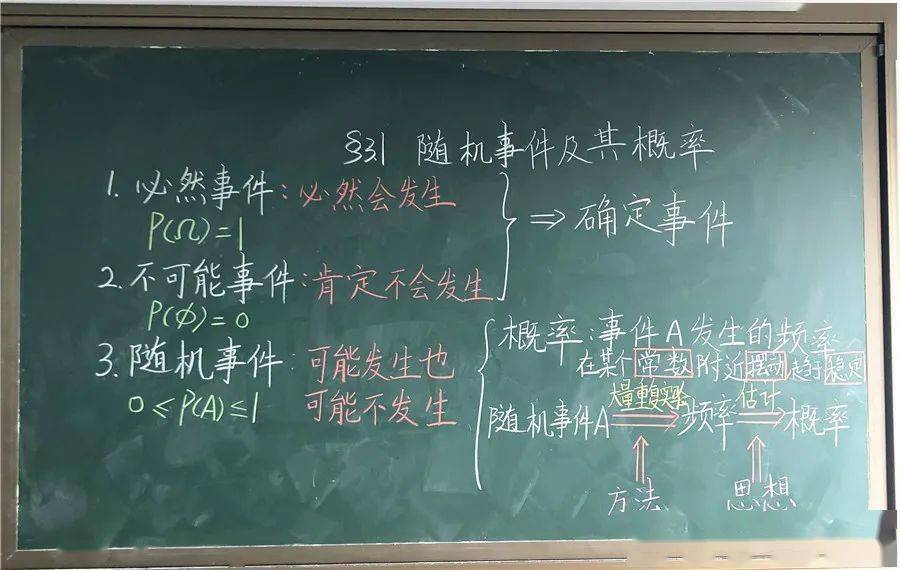 §3.1 随机事件及其概率
1. 必然事件：必然会发生
P(Ω)=1
2. 不可能事件：肯定不会发生
P(φ)=0
⇒ 确定事件
3. 随机事件：可能发生也
0≤P(A)≤1 可能不发生
概率：事件A发生的频率
在某个常数附近摆动趋于稳定
大量重复实验 估计
随机事件A ⇒ 频率 ⇒ 概率
方法 思想